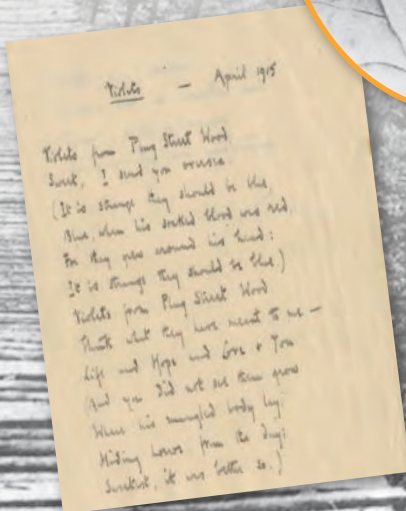 Violets — April 1915
Violets from Plug Street Wood
Sweet, I send you oversea.
(It is strange they should be blue,
Blue, when his soaked blood was red,
For they grew around his head:
It is strange they should be blue.)
Violets from Plug Street Wood
Think what they have meant to me —
Life and Hope and Love & You
(And you did not see them grow
Where his mangled body lay
Hiding horror from the day;
Sweetest, it was better so.)